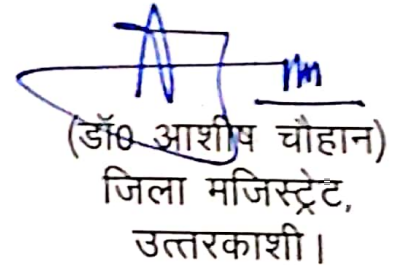 (डॉ0 आशीष चौहान)
जिला मजिस्ट्रेट,
उत्तरकाशी।